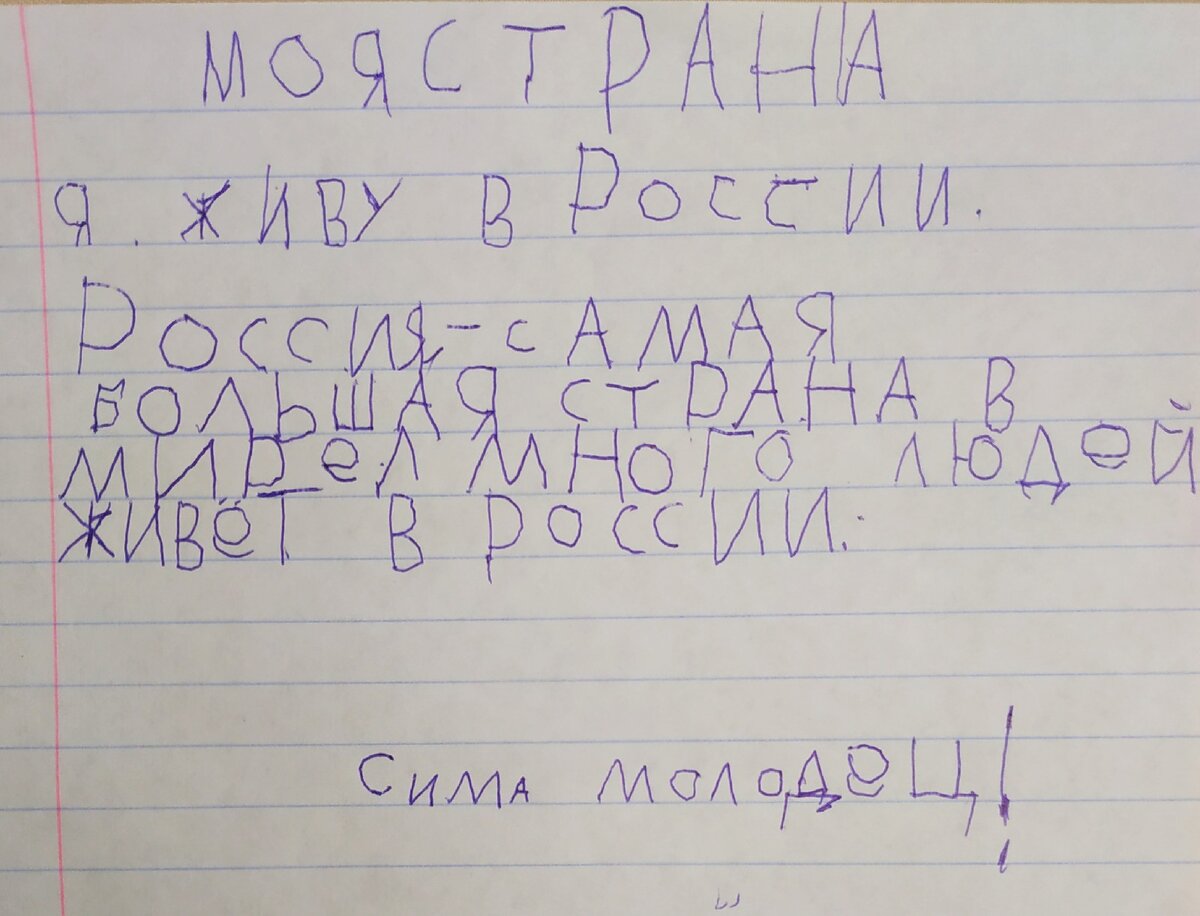 МОЯ СТРАНА
Я. ЖИВУ В РОССИИ.
РОССИЯ-САМАЯ
БОЛЬШАЯ СТРАНА В
МИРЕЛ МНОГО ЛЮДЕЙ
ЖИВЁТ В РОССИИ.
СИМА МОЛОДЕЦ!